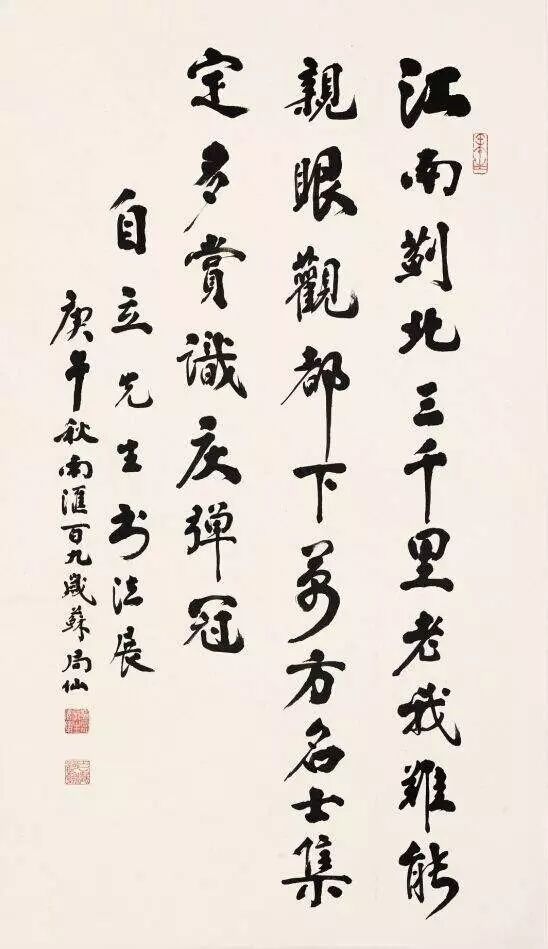 江南蓟北三千里老我難能
親眼觀都下萬方名士集
定多賞識慶彈冠
自立先生书法展
庚午秋南滙百九歲蘇局仙